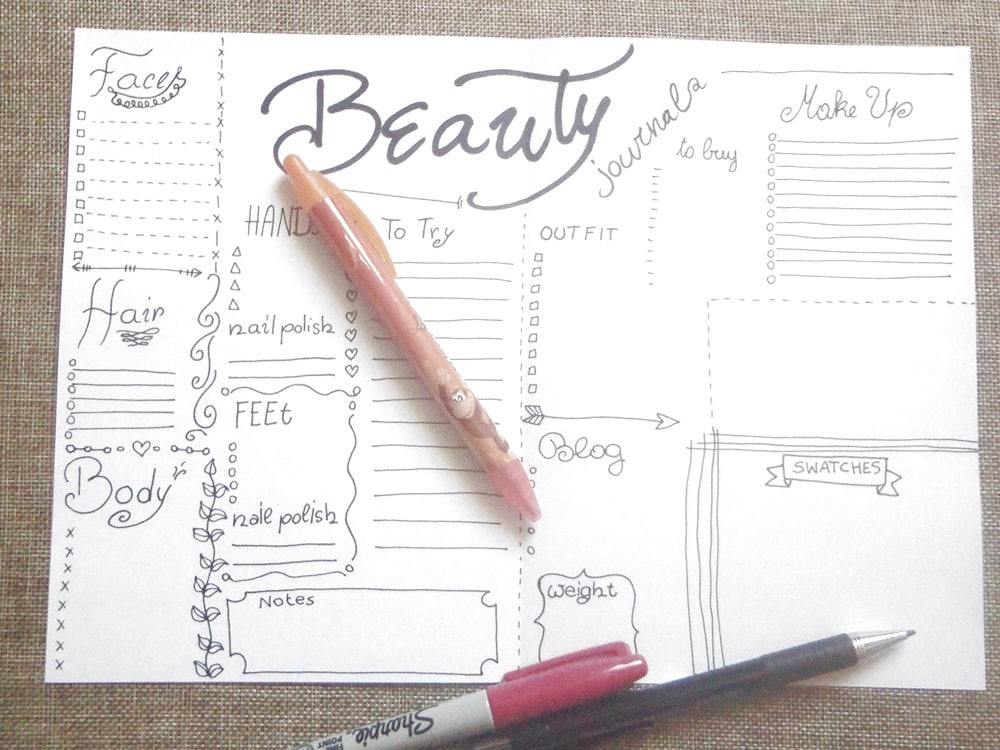 Faces
Beauty
journals
Make Up
to buy
HANDS
To Try
OUTFIT
Hair
nail polish
FEEt
Blog
Body
SWATCHES
naie polish
Weight
Notes
Sharpie
FINE
POINT